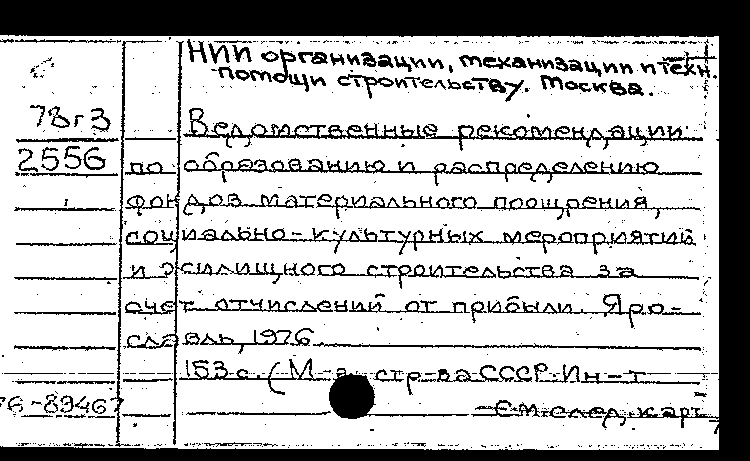 НИИ организации, механизации и техн.
помощи строительству. Москва.
78г3
Ведомственные рекомендации
2556
по образованию и распределению
фондов материального поощрения,
социально-культурных мероприятий
и жилищного строительства за
счет отчислений от прибыли. Яро-
славль, 1976.
153 с. (М-во стр-ва СССР. Ин-т
76-89467
См. след. карт.